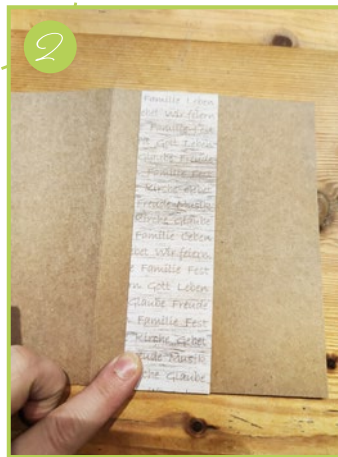 2
Familie Leben
ebet Wir feiern
Familie Fest
Gott Leben
Glaube Freude
Familie Fest
Kirche Gebet
Freude Musik
Kirche Glaube
Familie Leben
bet Wir feiern
e Familie Fest
rn Gott Leben
Glaube Freude
Familie Fest
Kirche Gebet
eude Musik
che Glaube